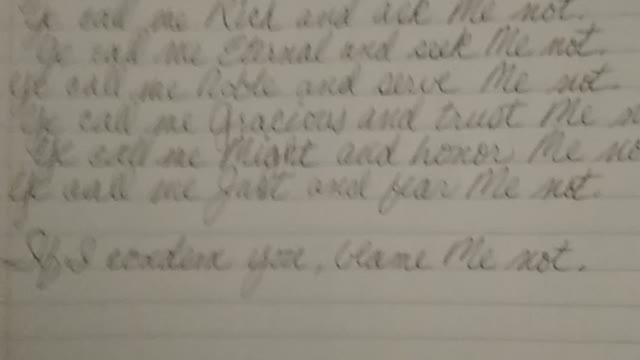 Ye call me Rich and ask Me not.
Ye call me Eternal and seek Me not.
Ye call me Noble and serve Me not.
Ye call me Gracious and trust Me
Ye call me Might and honor Me no
Ye call me Just and fear Me not.
If I condem you, blame Me not.